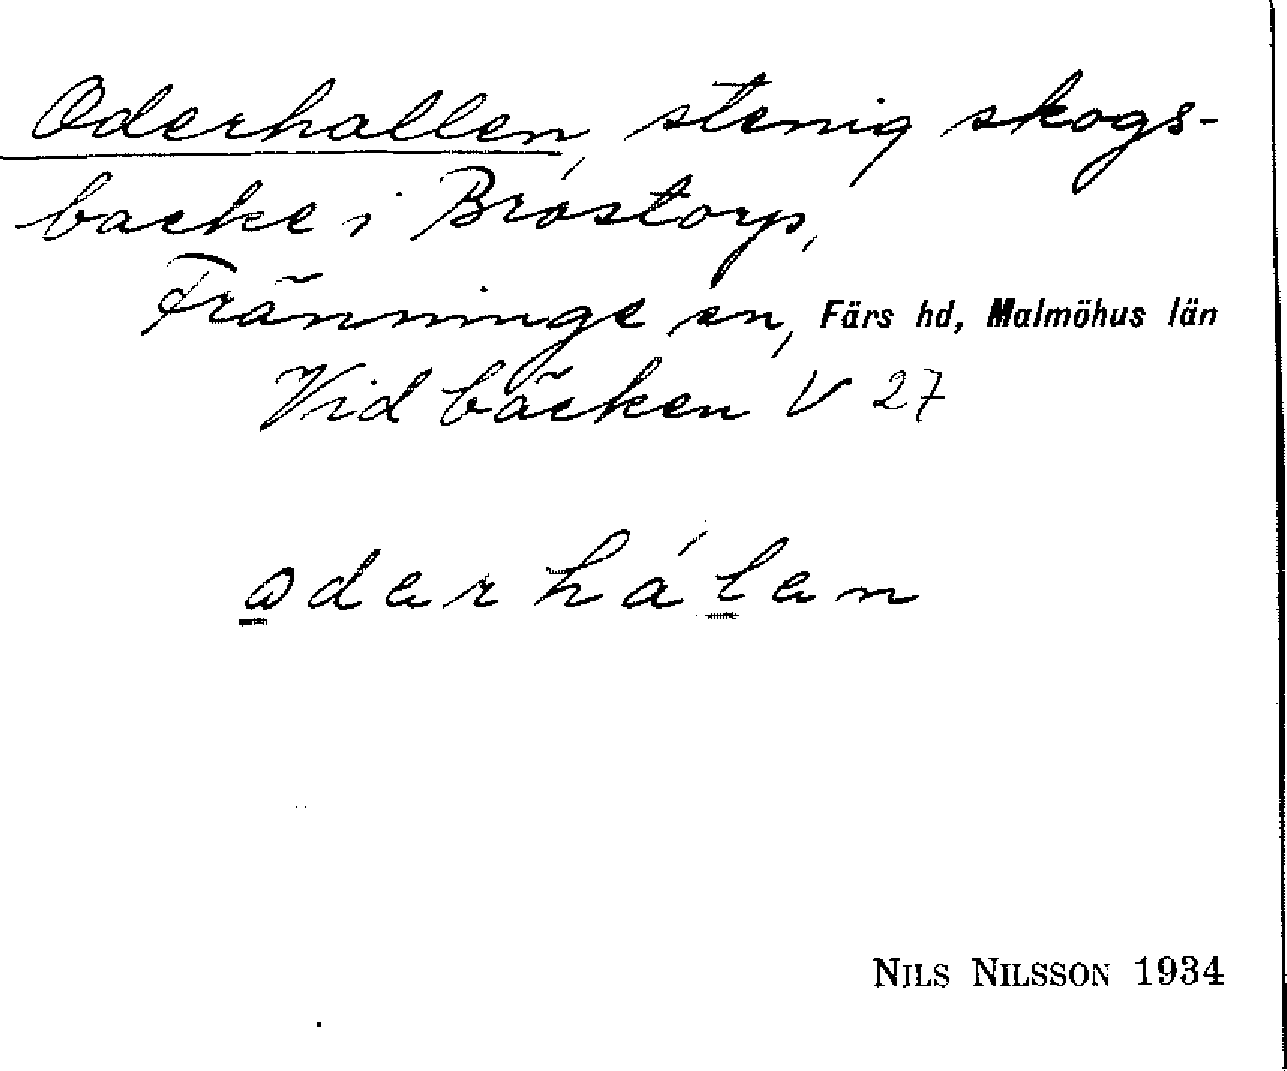 Oderhallen, stenig skogs-
backe i Brostorp,
Fränninge sn, Färs hd, Malmöhus län
Vid bäcken V 27
oderhálen
NILS NILSSON 1934